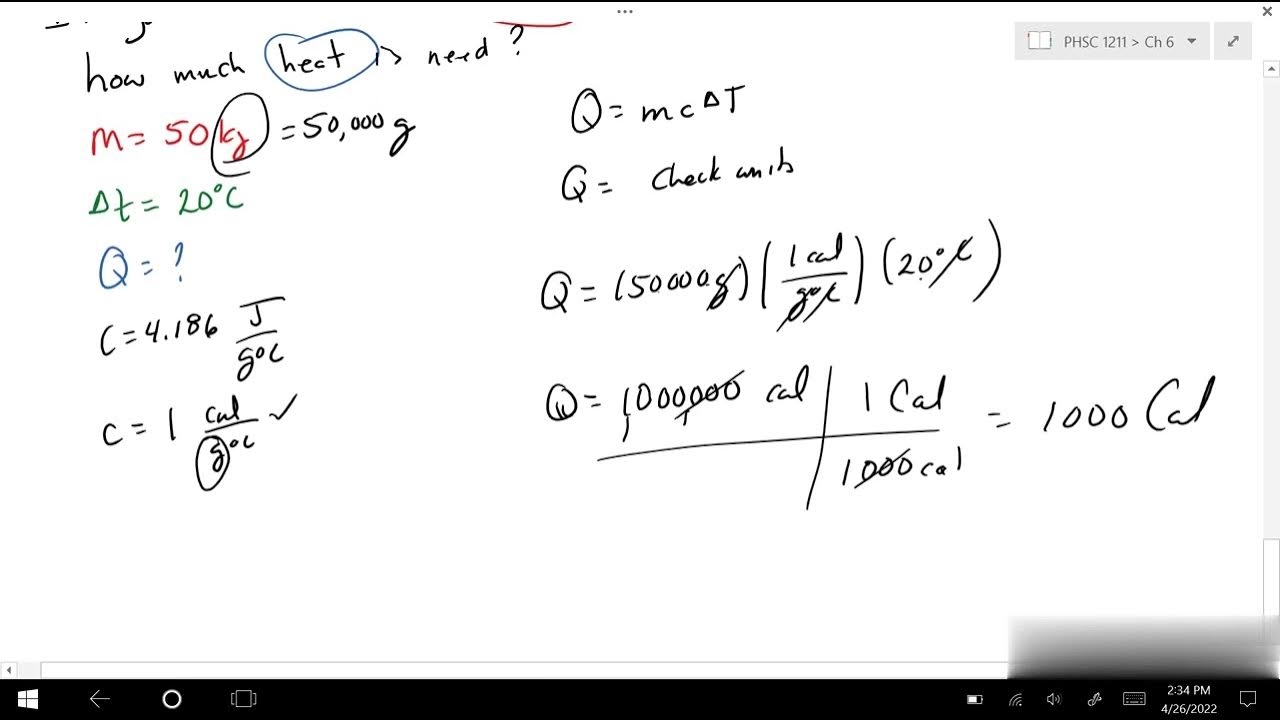 PHSC 1211 > Ch 6
how much heat is need?
m = 50 kg = 50,000 g
Δt = 20°C
Q = ?
C = 4.186 J/g°C
C = 1 Cal/g°C ✓
Q = mcΔT
Q = Check units
Q = (50000g) (1 cal/g°C) (20°C)
Q = 1000000 cal | 1 Cal / 1000 cal = 1000 Cal
2:34 PM
4/26/2022